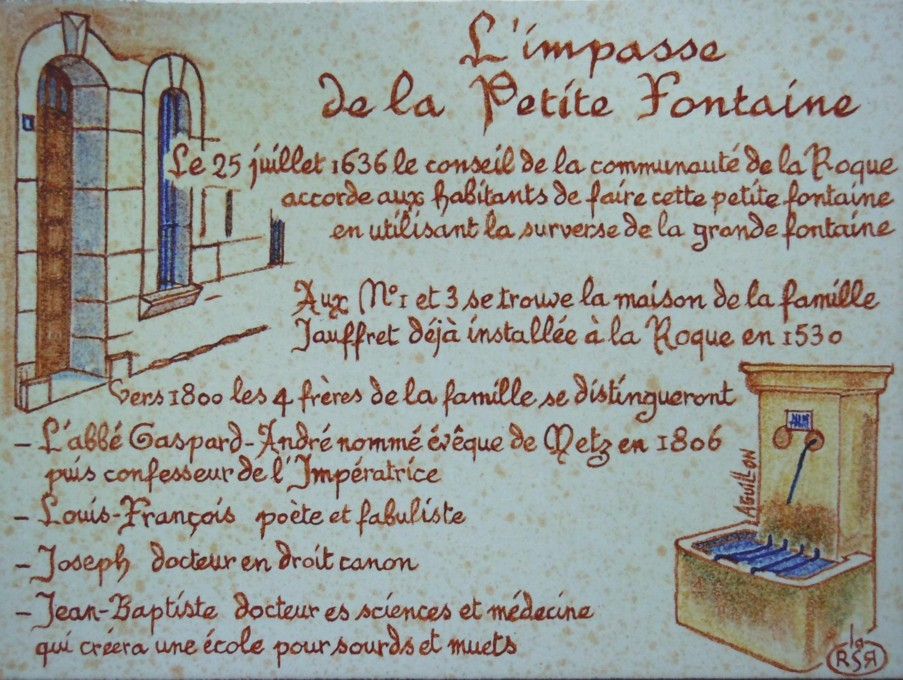 L'impasse
de la Petite Fontaine
Le 25 juillet 1636 le conseil de la communauté de la Roque
accorde aux habitants de faire cette petite fontaine
en utilisant la surverse de la grande fontaine
Aux N°1 et 3 se trouve la maison de la famille
Jauffret déjà installée à la Roque en 1530
Vers 1800 les 4 frères de la famille se distingueront
- L'abbé Gaspard-André nommé évêque de Metz en 1806
puis confesseur de l'Impératrice
- Louis-François poète et fabuliste
- Joseph docteur en droit canon
- Jean-Baptiste docteur es sciences et médecine
qui créera une école pour sourds et muets
J.AGUILLON
la
RSR